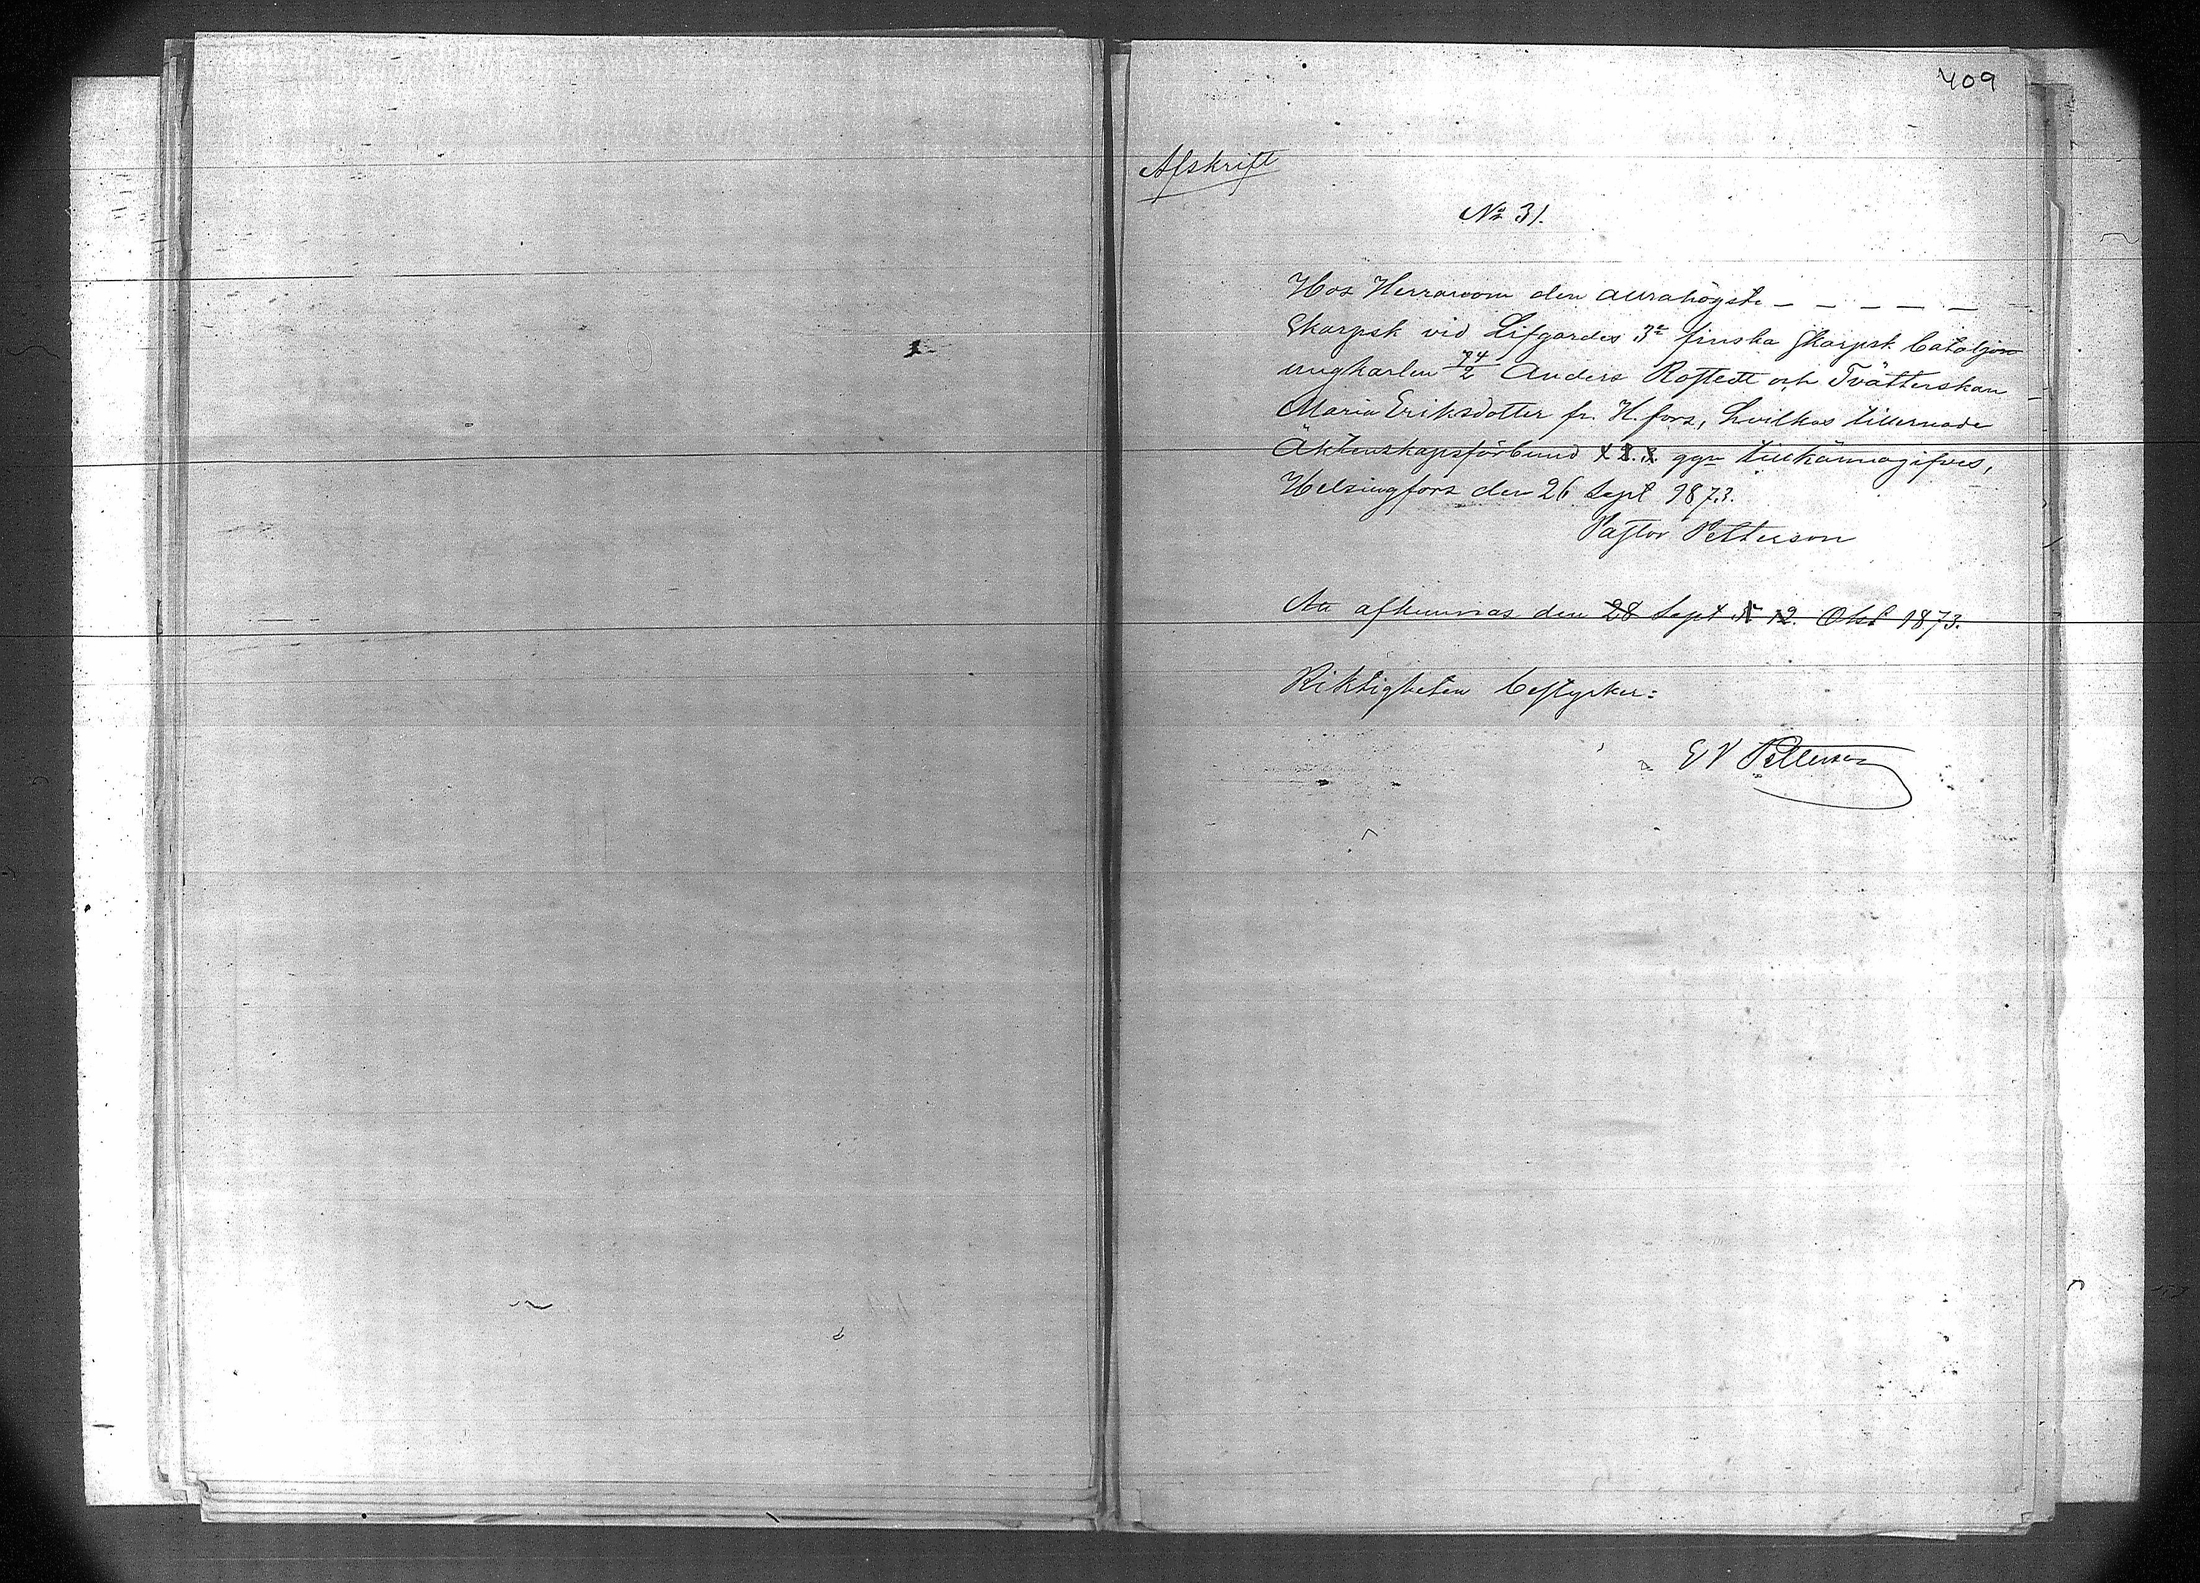 409
Afskrift
No 31.
Hos Herranom den allrahögste – – – – –
Skarpsk vid Lifgardes 3e finska Skarpsk bataljon
ungkarlen 74/2 Anders Rostedt och Tvätterskan
Maria Eriksdotter fr. H.fors, hvilkas tillernade
Äktenskapsförbund ggn tillkännagifves,
Helsingfors den 26 Sept 1873.
Pastor Petterson
Att afkunnas den 28 Sept 12. Okt 1873.
Riktigheten bestyrker:
E V Petterson